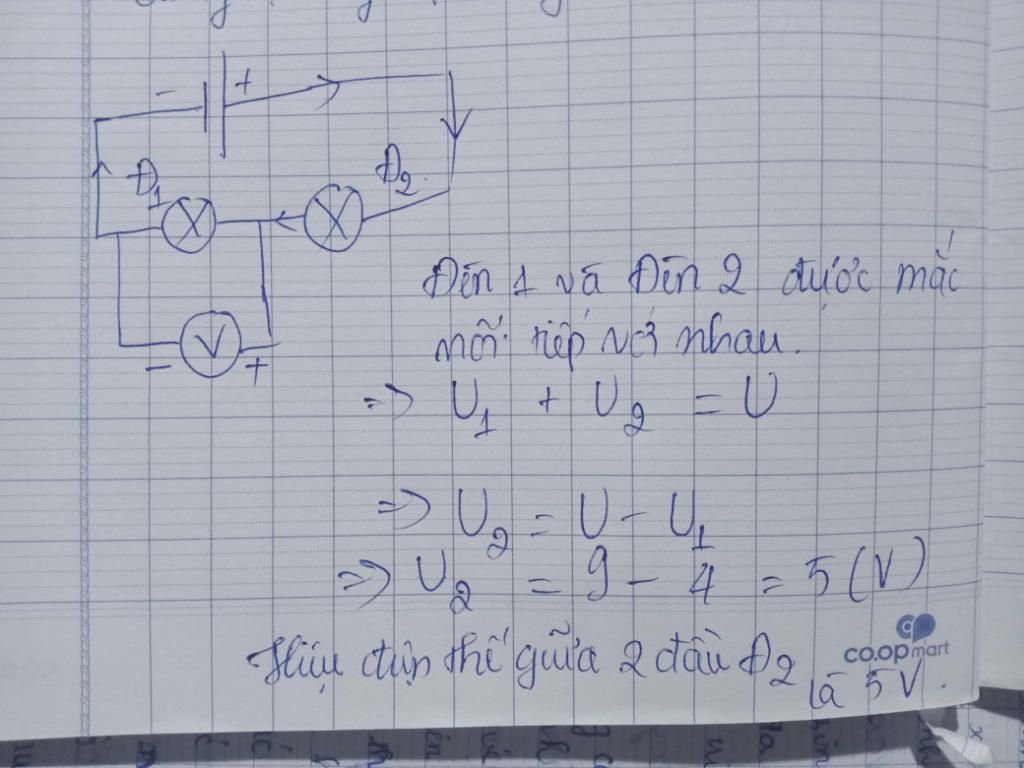 - +
Đ1
Đ2
X
X
V
- +
Đèn 1 và Đèn 2 được mắc
nối tiếp với nhau.
=> U1 + U2 = U
=> U2 = U - U1
=> U2 = 9 - 4 = 5 (V)
Hiệu điện thế giữa 2 đầu Đ2
là 5 V.
co.opmart